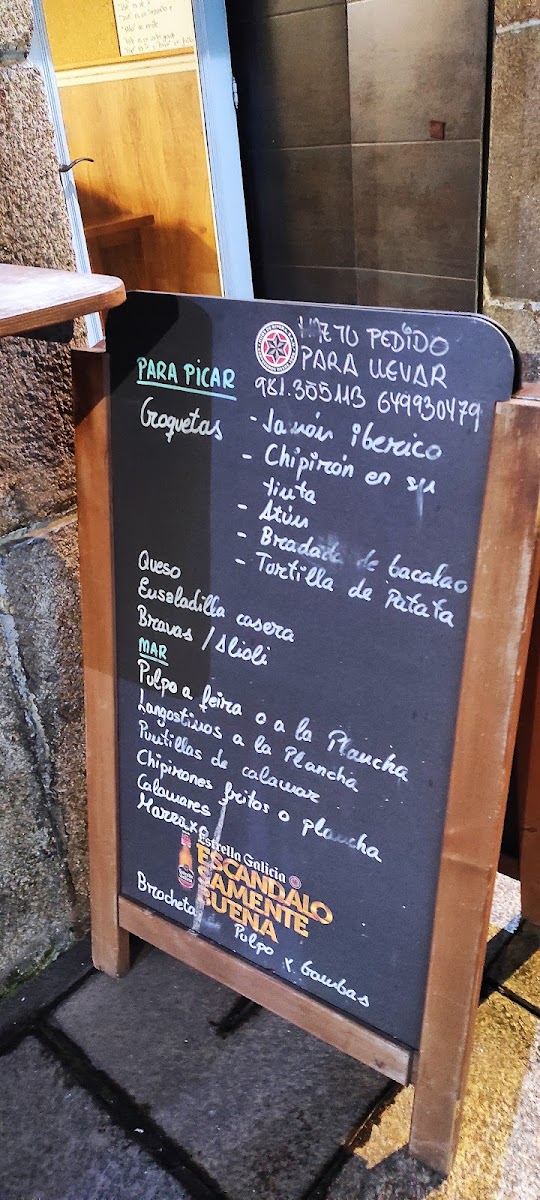 HAZ TU PEDIDO
PARA LLEVAR
981.355113 649930479
PARA PICAR
Croquetas - Jamón iberico
- Chipirón en su
tinta
- Atún
- Bradada de bacalao
- Tortilla de Patata
Queso
Ensaladilla casera
Bravas / Alioli
MAR
Pulpo a feira o a la Plancha
Langostinos a la Plancha
Puntillas de calamar
Chipirones fritos o plancha
Calamares
Marraxo
Estrella Galicia
ESCANDALO
SAMENTE
BUENA
Brocheta Pulpo x Gambas